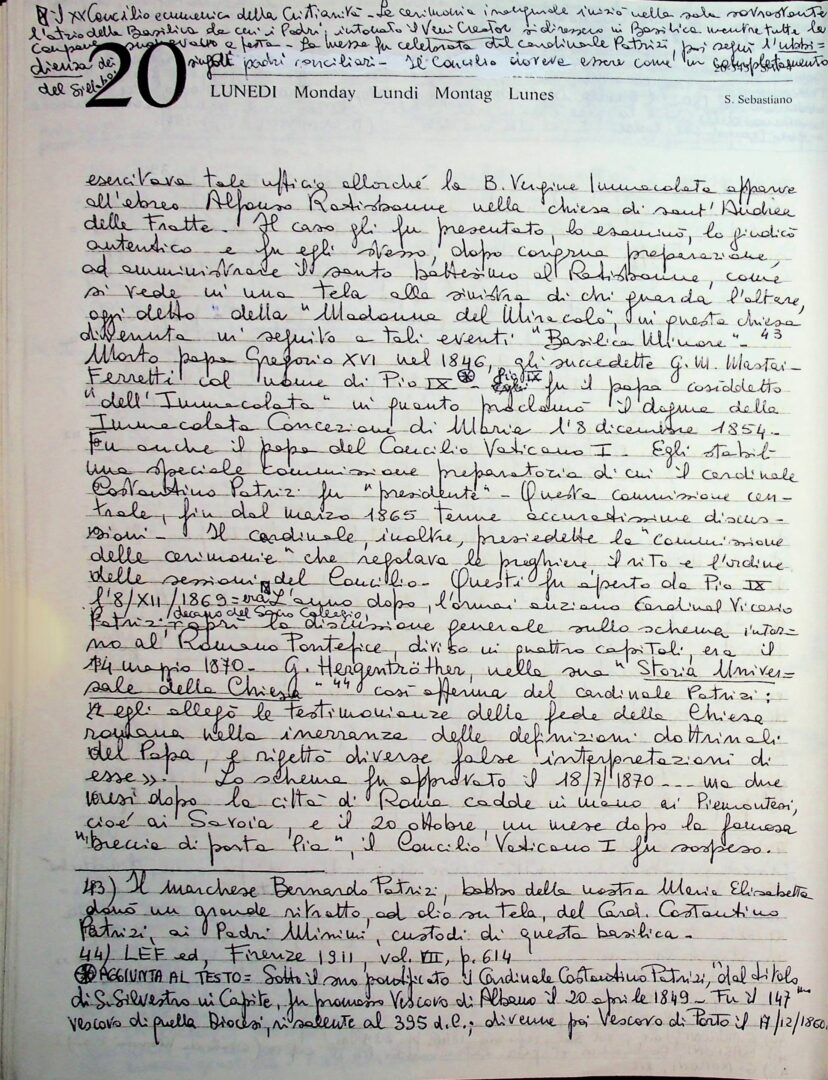 Il XX Concilio ecumenico della Cristianità - La cerimonia inaugurale iniziò nella sala sovrastante
l'atrio della Basilica da cui i Padri, intonato il Veni Creator si diressero in Basilica mentre tutte le
campane suonavano a festa - La messa fu celebrata dal cardinale Patrizi, poi seguì l'ubbi=
dienza dei singoli padri conciliari - Il Concilio doveva essere come un completamento
del Sillabo
20
LUNEDI Monday Lundi Montag Lunes
S. Sebastiano
esercitava tale ufficio allorché la B. Vergine Immacolata apparve
all'ebreo Alfonso Ratisbonne nella chiesa di sant'Andrea
delle Fratte - Il caso gli fu presentato, lo esaminò, lo giudicò
autentico e fu egli stesso, dopo congrua preparazione,
ad amministrare il santo battesimo al Ratisbonne, come
si vede in una tela alla sinistra di chi guarda l'altare,
oggi detto "della "Madonna del Miracolo", in questa chiesa
divenuta in seguito a tali eventi "Basilica Minore" - 43
Morto papa Gregorio XVI nel 1846, gli succedette G. M. Mastai-
Ferretti col nome di Pio IX - Pio IX fu il papa cosiddetto
"dell'Immacolata" in quanto proclamò il dogma della
Immacolata Concezione di Maria l'8 dicembre 1854 -
Fu anche il papa del Concilio Vaticano I - Egli stabilì
una speciale commissione preparatoria di cui il cardinale
Costantino Patrizi fu "presidente" - Questa commissione cen-
trale, fin dal marzo 1865 tenne accuratissime discus-
sioni - Il cardinale, inoltre, presiedette la "Commissione
delle cerimonie" che regolava le preghiere il rito e l'ordine
delle sessioni del Concilio - Questi fu aperto da Pio IX
l'8/XII/1869 = era L'anno dopo, l'ormai anziano Cardinal Vicario
/decano del Sacro Collegio/
Patrizi aprì la discussione generale sullo schema intor=
no al Romano Pontefice, diviso in quattro capitoli, era il
14 maggio 1870 - G. Hergentröther, nella sua "Storia Univer=
sale della Chiesa" 44 così afferma del cardinale Patrizi:
« egli allegò le testimonianze della fede della Chiesa
romana nella inerranza delle definizioni dottrinali
del Papa, e rigettò diverse false interpretazioni di
esse ». Lo schema fu approvato il 18/7/1870 --- ma due
mesi dopo la città di Roma cadde in mano ai Piemontesi,
cioè ai Savoia, e il 20 ottobre, un mese dopo la famosa
"breccia di porta Pia", il Concilio Vaticano I fu sospeso.
43) Il marchese Bernardo Patrizi, babbo della nostra Maria Elisabetta
donò un grande ritratto, ad olio su tela, del Card. Costantino
Patrizi, ai Padri Minimi, custodi di questa basilica -
44) LEF ed, Firenze 1911, vol. VII, p. 614
AGGIUNTA AL TESTO = Sotto il suo pontificato il Cardinale Costantino Patrizi, "dal titolo
di S. Silvestro in Capite, fu promosso Vescovo di Albano il 20 aprile 1849 - Fu il 147mo
vescovo di quella Diocesi, risalente al 395 d.C.; divenne poi Vescovo di Porto il 17/12/1860